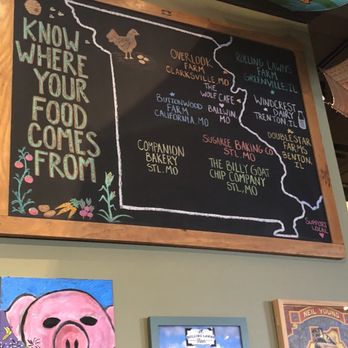 KNOW
WHERE
YOUR
FOOD
COMES
FROM
OVERLOOK
FARM
CLARKSVILLE, MO
THE
WOLF CAFE
BALLWIN,
MO
BUTTONWOOD
FARM
CALIFORNIA, MO
COMPANION
BAKERY
STL. MO
SUGAREE BAKING CO
STL. MO
THE BILLY GOAT
CHIP COMPANY
STL, MO
ROLLING LAWNS
FARM
GREENVILLE, IL
WINDCREST
DAIRY
TRENTON, IL
DOUBLESTAR
FARMS
BENTON,
IL
SUPPORT
LOCAL
ROLLING LAWNS
NEIL YOUNG